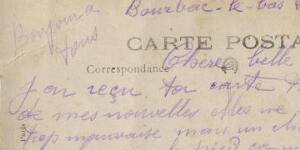 Bonjour à
tous
Bourbac-le-bas
CARTE POSTA
Correspondance
Chère belle
J'ai reçu ta carte
de mes nouvelles elles ne
trop mauvaise mais un
le pied